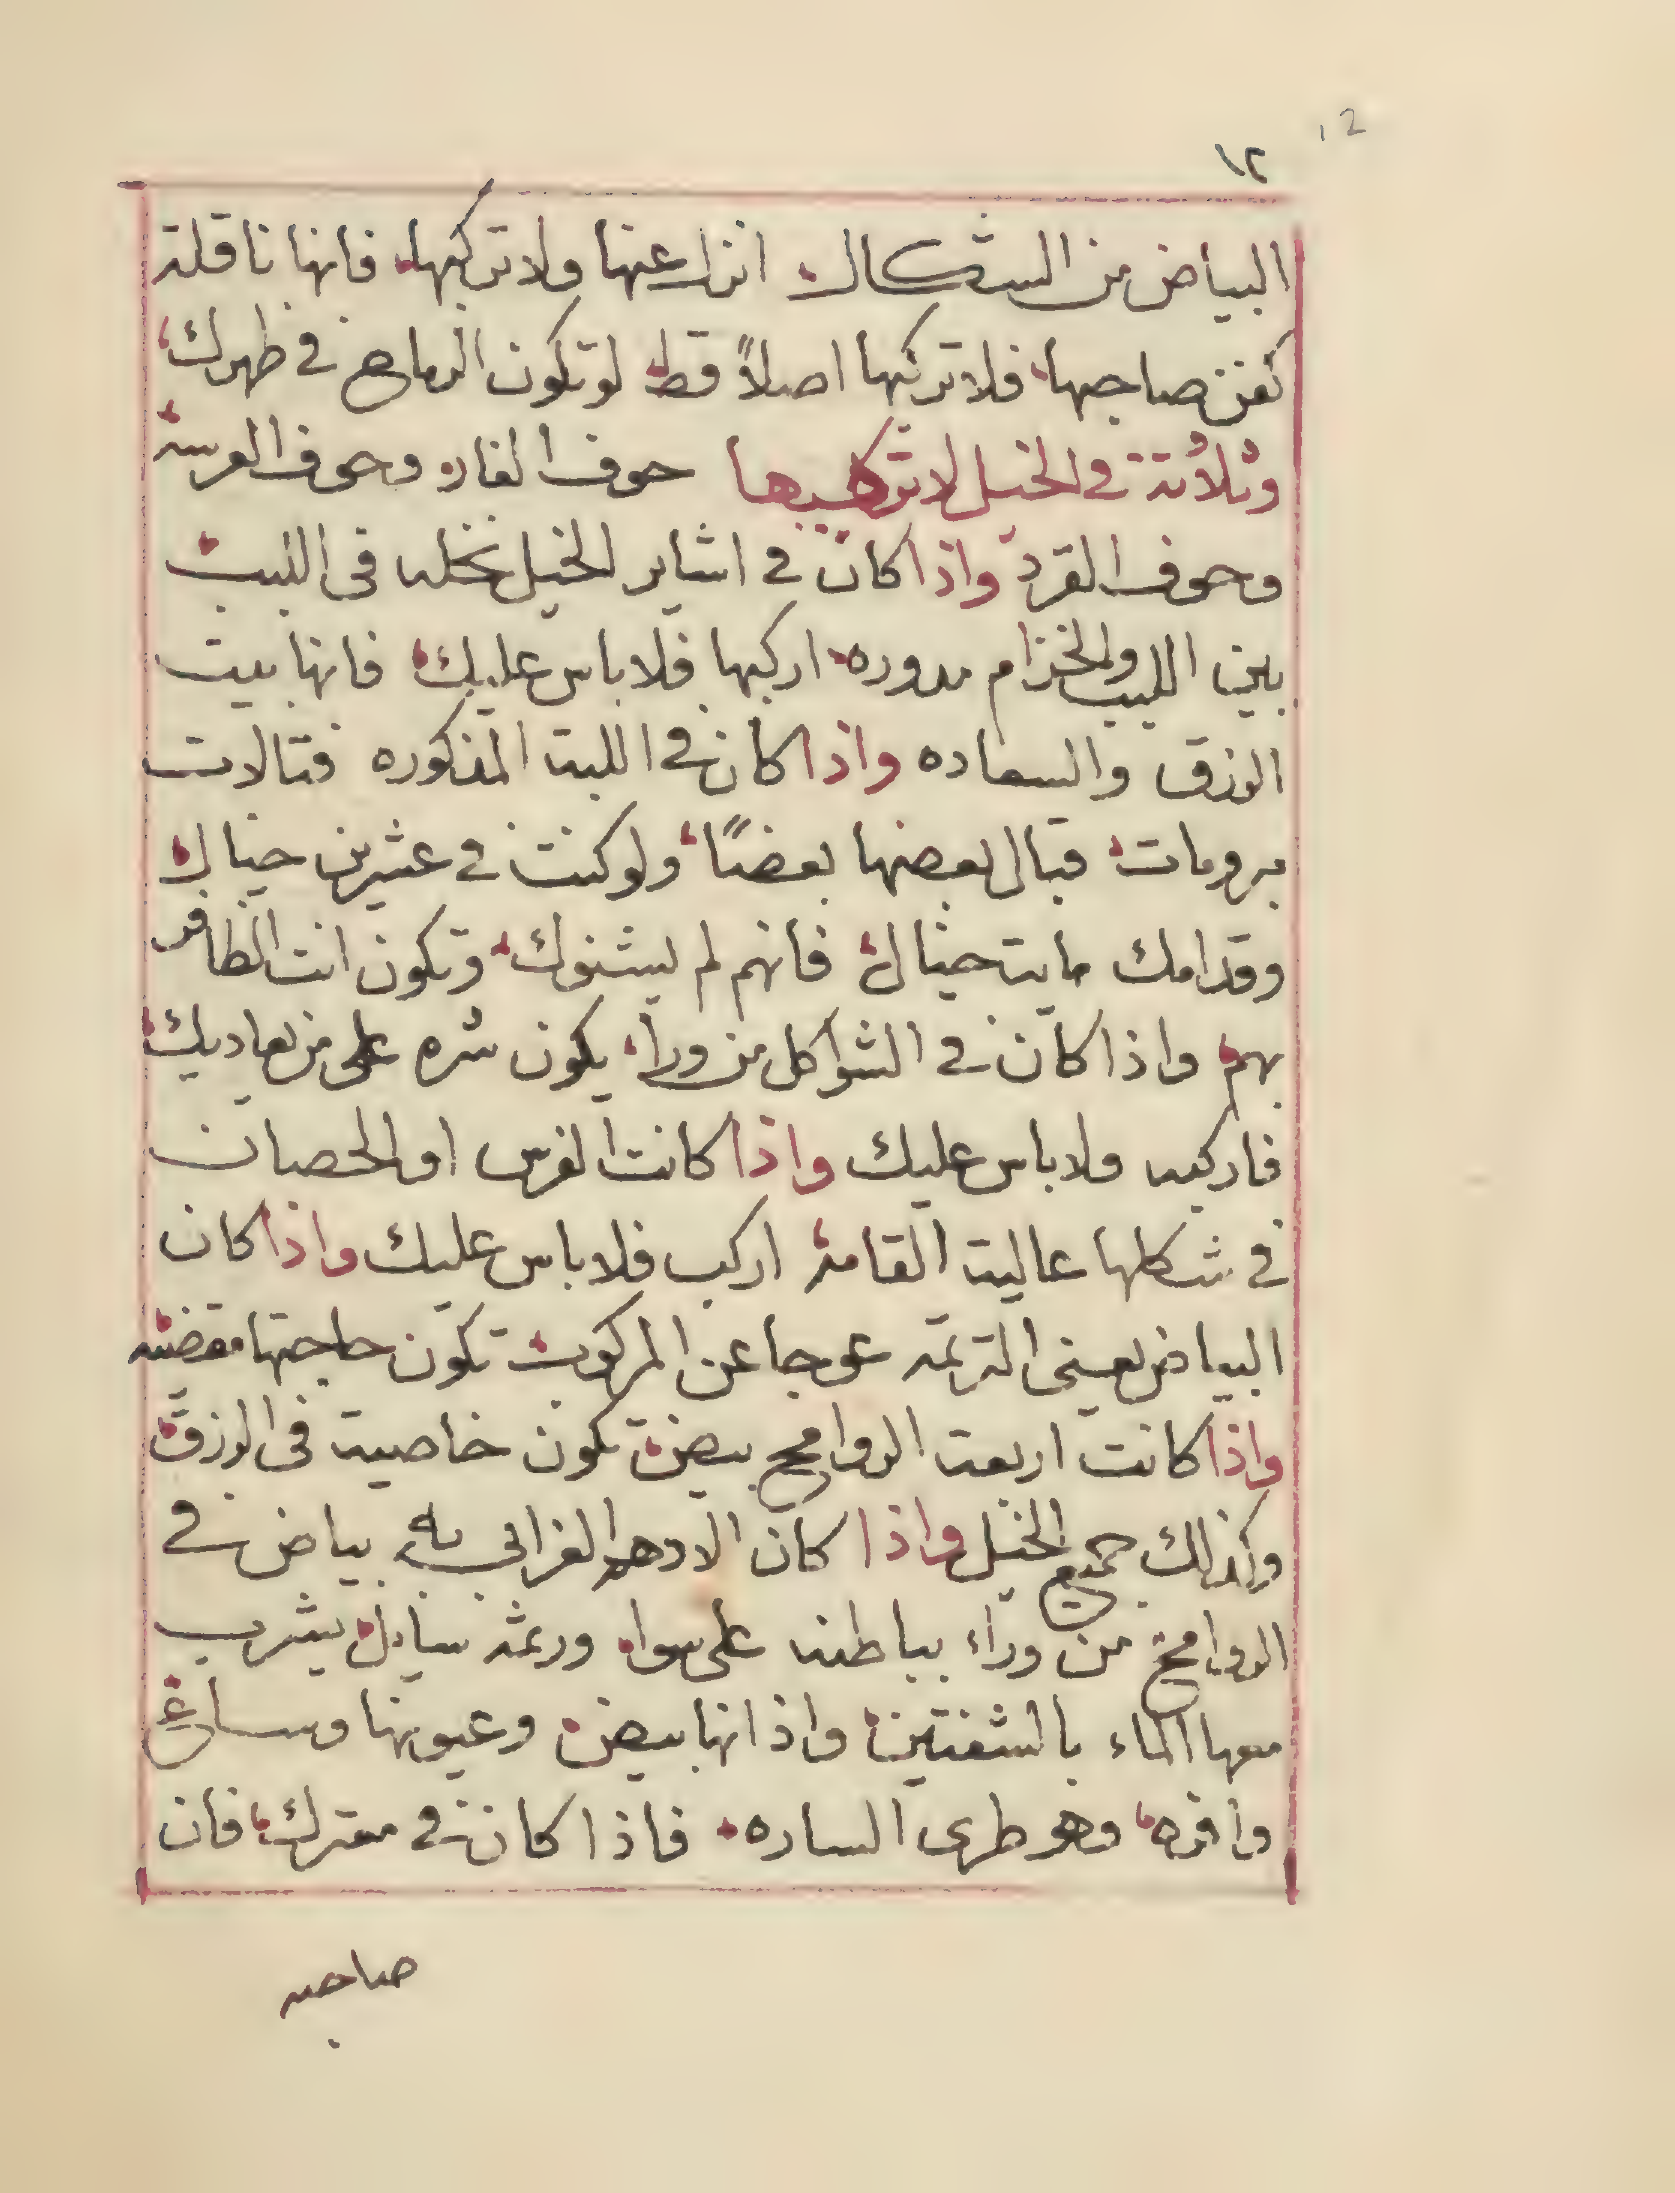 12
١٢
البياض من الشكال انزل عنها ولا تركبها فانها ناقلة
كفن صاحبها فلا تركبها اصلاً قط لو تكون الرماح في ظهرك
وثلاثة في الخيل لا تركبها حوف الفاره وحوف العرسه
وحوف القرد واذا كان في اشاير الخيل نخله في اللبب
بين اللبب والخزام مدوره اركبها فلا باس عليك فانها بيت
الرزق والسعاده واذا كان في اللبة المذكوره فتالات
برومات قبال بعضها بعضاً ولو كنت في عشرين خيال
وقدامك مايت خيال فانهم لم يشنوك وتكون انت الظافر
بهم واذا كان في الشواكل من ورا يكون شره على من يعاديك
فاركبه ولا باس عليك واذا كانت الفرس او الحصان
في شكلها عالية القامه اركب فلا باس عليك واذا كان
البياض يعني الترتمه عوجا عن المركوب تكون حاجتها مقضيه
واذا كانت اربعة الروامح بيض تكون خاصية في الرزق
وكذالك جميع الخيل واذا كان الادهم الغرابي به بياض في
الروامح من وراء بباطنه على سواه ورعثه سايل يشرب
معها الماء بالشفتين واذانها بيض وعيونها وساع
وافره وهو طرى الساره فاذا كان في معترك فان
صاحبه